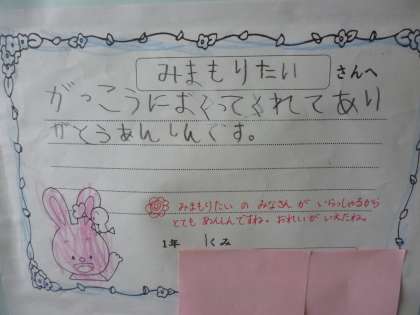 みまもりたい さんへ
がっこうにおくってくれてあり
がとうあんしんです。
みまもりたい の みなさん が いらっしゃるから
とても あんしんですね。おれいが いえたね。
1年 1くみ